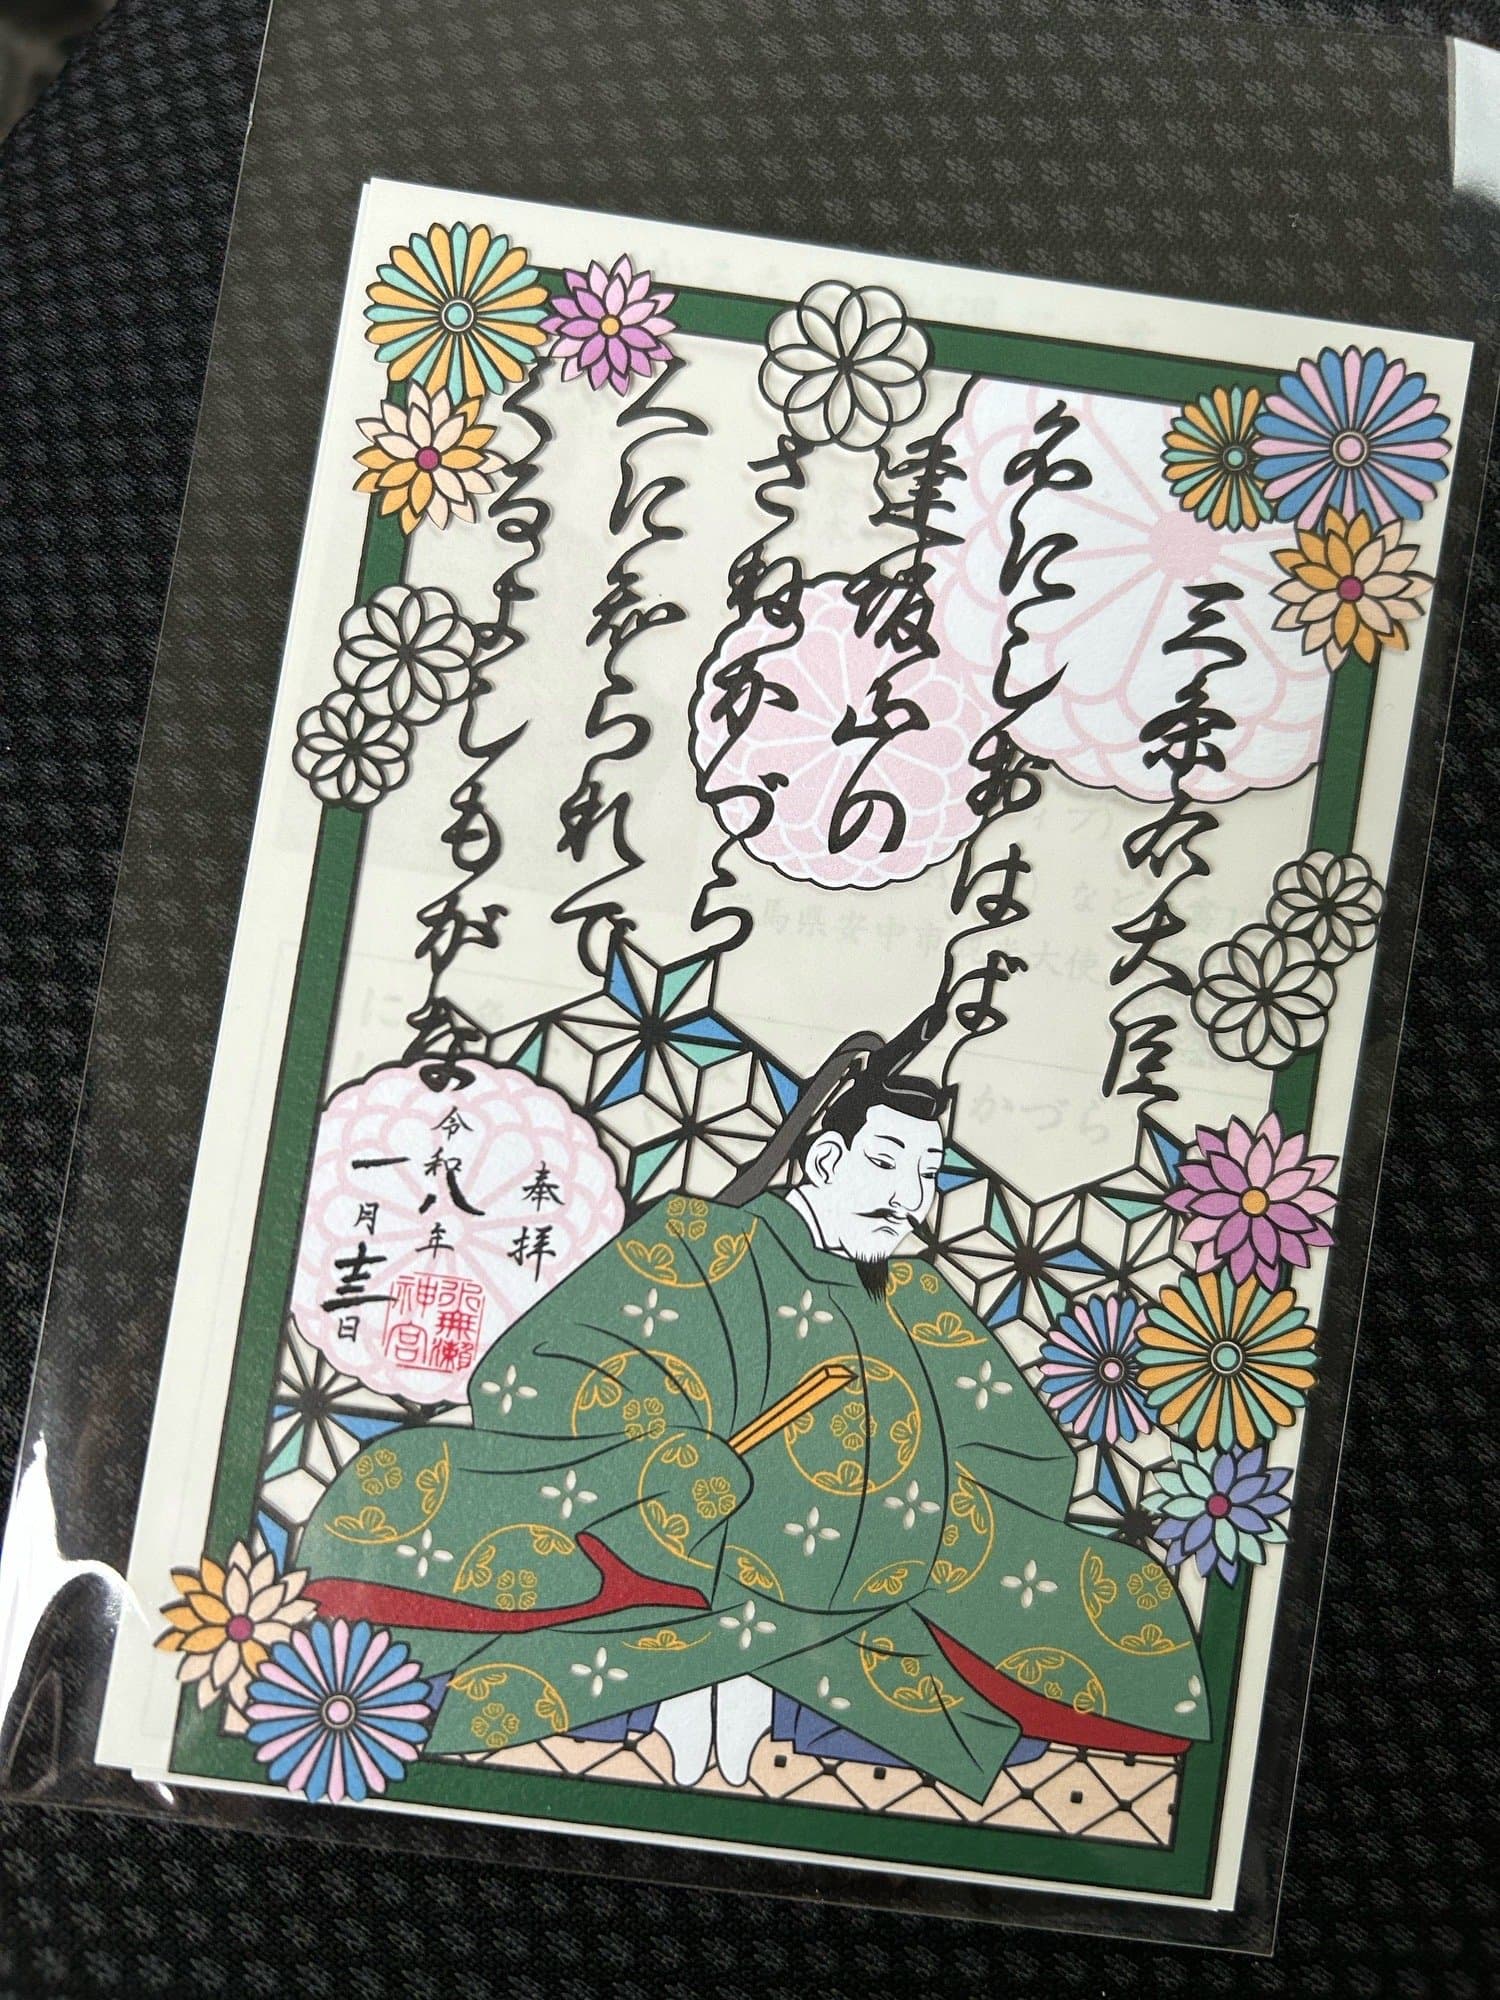 三条右大臣
名にしおはば
逢坂山の
さねかづら
人に知られで
くるよしもがな
奉拝
令和八年
一月十三日
水無瀬
神宮
かづら